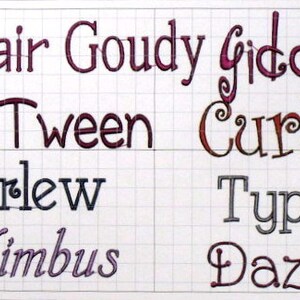 air Goudy Gidd
Tween Cur
rlew Typ
imbus Daz